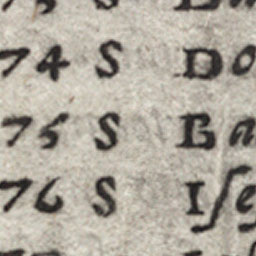 74 S Do
75 S Ba
76 S Iſe